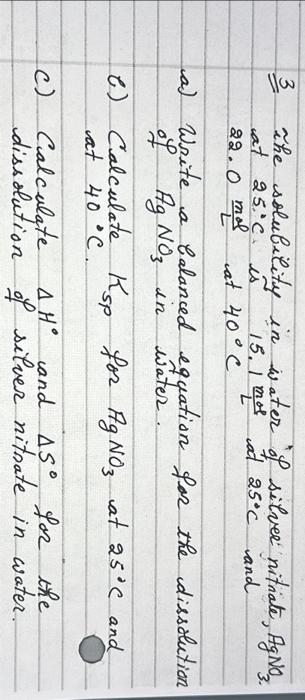 3 The solubility in water of silver nitrate, AgNO3
at 25°C. is 15.1 mol/L at 25°C and
22.0 mol/L at 40°C
a) Write a balanced equation for the dissolution
of AgNO3 in water.
b) Calculate Ksp for AgNO3 at 25°C and
at 40°C.
c) Calculate ΔH° and ΔS° for the
dissolution of silver nitrate in water.